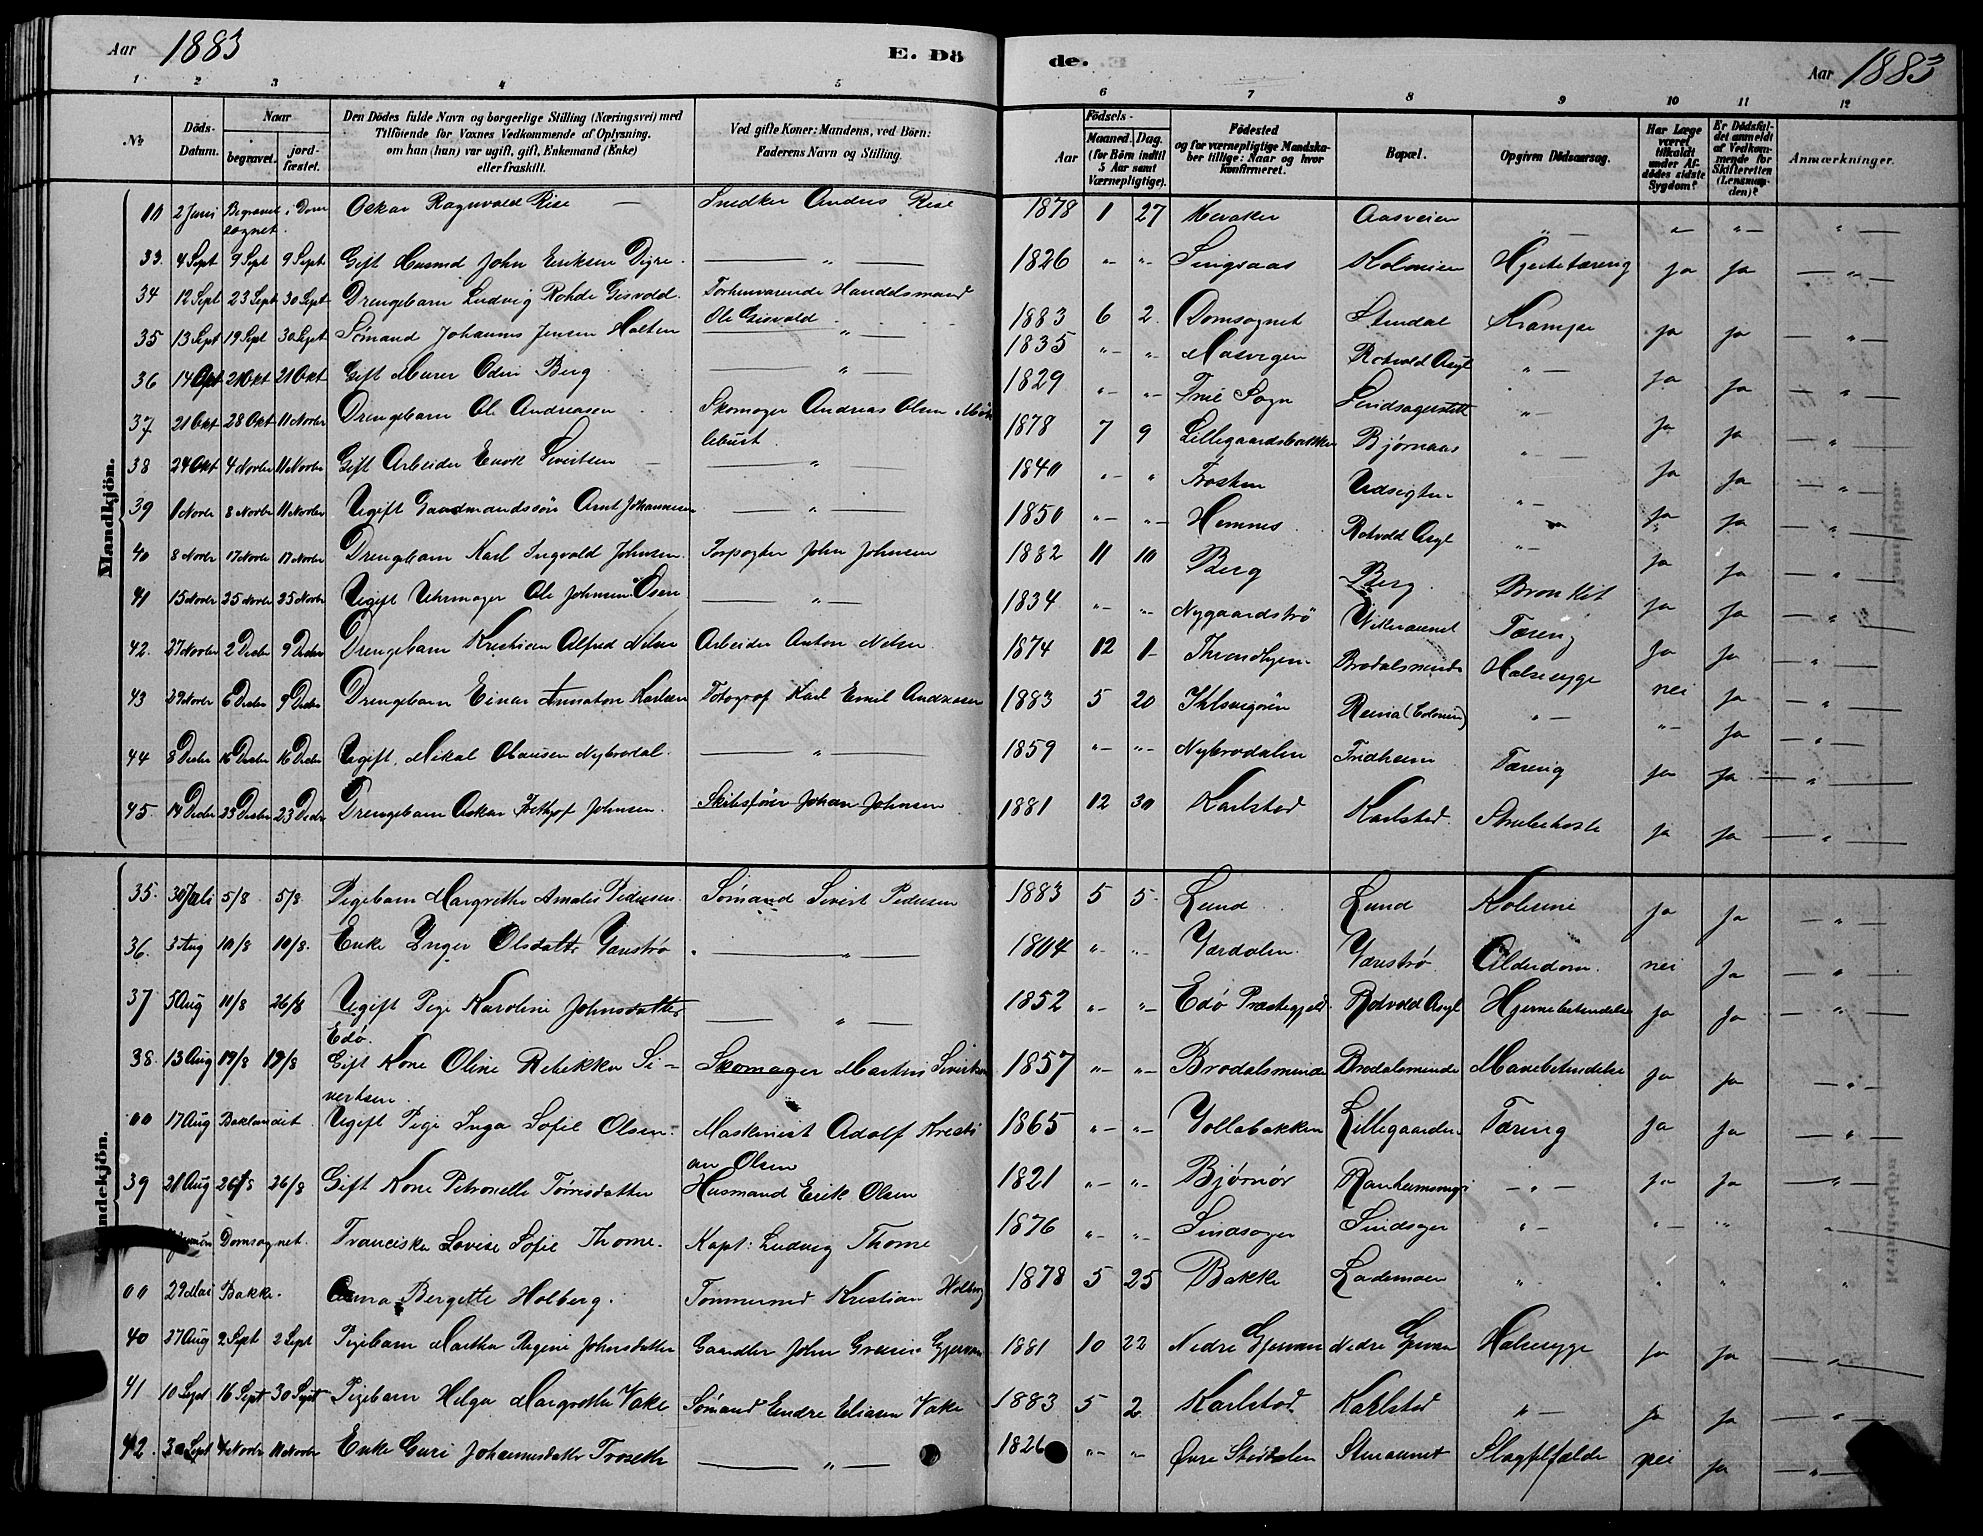 Aar 1883 E. Dö de. Aar 1883
1 2 3 4 5 6 7 8 9 10 11 12
No Döds-Datum. Naar begravet. jordfæstet. Den Dödes fulde Navn og borgerlige Stilling (Næringsvei) med Tilföiende for Voxnes Vedkommende af Oplysning, om han (hun) var ugift, gift, Enkemand (Enke) eller fraskilt. Ved gifte Koner: Mandens, ved Börn: Faderens Navn og Stilling. Födsels- Aar Maaned. Dag. (for Börn indtil 5 Aar samt Værnepligtige). Födested og for værnepligtige Mandskaber tillige: Naar og hvor konfirmeret. Bopæl. Opgiven Dödsaarsag. Har Læge været tilkaldt under Afdödes sidste Sygdom? Er Dödsfaldet anmeldt af Vedkommende for Skifteretten (Lensmanden)? Anmærkninger.
Mandkjön.
2 Juni Begravet i Domsognet. Oskar Ragnvald Rise — Snedker Anders Rise 1878 1 27 Meraker Aasveien „ — „ — „ — „ —
33. 4 Sept 9 Sept 9 Sept Gift Husmd John Eriksen Digre. — „ — 1826 „ „ Singsaas Kolonien Hjertetæring ja ja — „ —
34 12 Sept 23 Sept 30 Sept Drengebarn Ludvig Rohde Gisvold. Forhenværende Handelsmand Ole Gisvold 1883 6 2 Domsognet Stendal Krampe ja ja — „ —
35 13 Sept 19 Sept 30 Sept Sømand Johannes Jensen Holten — „ — 1835 „ „ Mosvigen Rotvold Asyl „ — ja ja — „ —
36 14 Okt 21 Okt 21 Okt Gift Murer Odin Berg — „ — 1829 „ „ Frue Sogn „ — ja ja — „ —
37 21 Okt 28 Okt 11 Novbr Drengebarn Ole Andreasen Skomager Andreas Olsen 1878 7 9 Lillegaardsbakken Bjørnaas „ — ja ja — „
38 24 Okt 4 Novbr 11 Novbr Gift Arbeider Enok Sivertsen — „ 1840 „ „ Frosten Udsigten „ — ja ja — „ —
39 1 Novbr 8 Novbr 11 Novbr Ugift Gaardmandssøn Arnt Johannesen — „ — 1850 „ „ Hemnes Rotvold Asyl „ — ja ja — „ —
40 8 Novbr 17 Novbr 17 Novbr Drengebarn Karl Ingvald Johnsen. Forpagter John Johnsen 1882 11 10 Berg Berg Bronkit ja ja — „ —
41 15 Novbr 25 Novbr 25 Novbr Ugift Uhrmager Ole Johnsen Osen — „ — 1834 „ „ Nygaardstrø Vikeraunet Tæring ja ja — „ —
42. 27 Novbr 2 Decbr 9 Decbr Drengebarn Kristian Alfred Nilsen Arbeider Anton Nilsen 1874 12 1 Throndhjem Brodalsmende Halssyge ja ja — „ —
43 29 Novbr 6 Decbr 9 Decbr Drengebarn Einar Annaton Karlsen Fotograf Karl Emil Andreasen 1883 5 20 Ihlsvigøren Reina (Colonien) „ — nei ja — „ —
44 8 Decbr 16 Decbr 16 Decbr Ugift. Mikal Olausen Nybrodal. — „ — 1859 „ „ Nybrodalen Fridheim Tæring ja ja — „ —
45 14 Decbr 23 Decbr 23 Decbr Drengebarn Oskar Frithjof Johnsen. Skibsfører Johan Johnsen 1881 12 30 Karlstad Karlstad. Strubehoste ja ja — „ —
Kvindekjön.
35. 30 Juli 5/8 5/8 Pigebarn Margrethe Amalie Pedersen Sømand Sivert Pedersen 1883 5 5 Lund Lund Kolerine ja ja — „ —
36. 3 Aug 10/8 10/8. Enke Inger Olsdatter Vanstrø — „ — 1804 „ „ Værdalen. Vanstrø Alderdom. nei ja — „ —
37 5 Aug 11/8 26/8 Ugift Pige Karoline Johnsdatter Edø. — „ — 1852 „ „ Edø Præstegjeld Rotvold Asyl Hjernebetændelse ja ja — „ —
38. 13 Aug 19/8 19/8 Gift Kone Oline Rebekka Sivertsen Skomager Martin Sivertsen 1857 „ „ Brodalsmende Brodalsmende Mavebetændelse ja ja — „ —
00 17 Aug Baklandet. Ugift Pige Inga Sofie Olsen. Maskinist Adolf Kristian Olsen 1865 „ „ Vollabakken Lillegaarden Tæring ja ja — „ —
39 21 Aug 26/8 26/8 Gift Kone Petronelle Tørrisdatter Husmand Erik Olsen 1821 „ „ Bjørnør — „ — ja ja — „ —
Domsognet. Franciska Lovise Sofie Thome. Kapt: Ludvig Thome 1876 „ „ „ — „ — „ „
00 29 Mai Bakke. Anna Bergette Holberg. Tømmermd Kristian Holberg 1878 5 25 Bakke Lademoen „ „ „ „
40 27 Aug 2 Sept 2 Sept Pigebarn Martha Regine Johnsdatter Gaardbr John Gjervan 1881 10 22 Nedre Gjervan Nedre Gjervan Halssyge ja ja — „ —
41 10 Sept 16 Sept 30 Sept Pigebarn Helga Margrethe Vake Sømand Endre Eliasen Vake 1883 5 2 Karlstad Karlstad „ — ja ja — „ —
42. 30 Sept 4 Novbr 11 Novbr Enke Guri Johannesdatter Troseth — „ — 1826 „ „ Øvre Størdalen Sturaunet Slagtilfælde nei ja — „ —